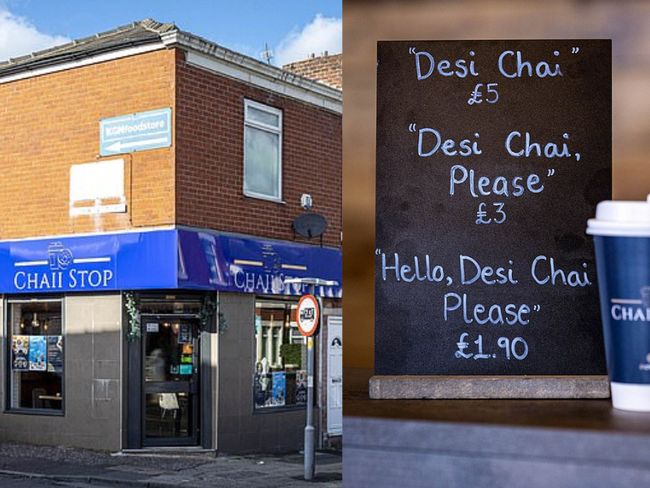 KGNfoodstore
CHAII STOP
CHAII STOP
"Desi Chai"
£5
"Desi Chai,
Please"
£3
"Hello, Desi Chai
Please"
£1.90